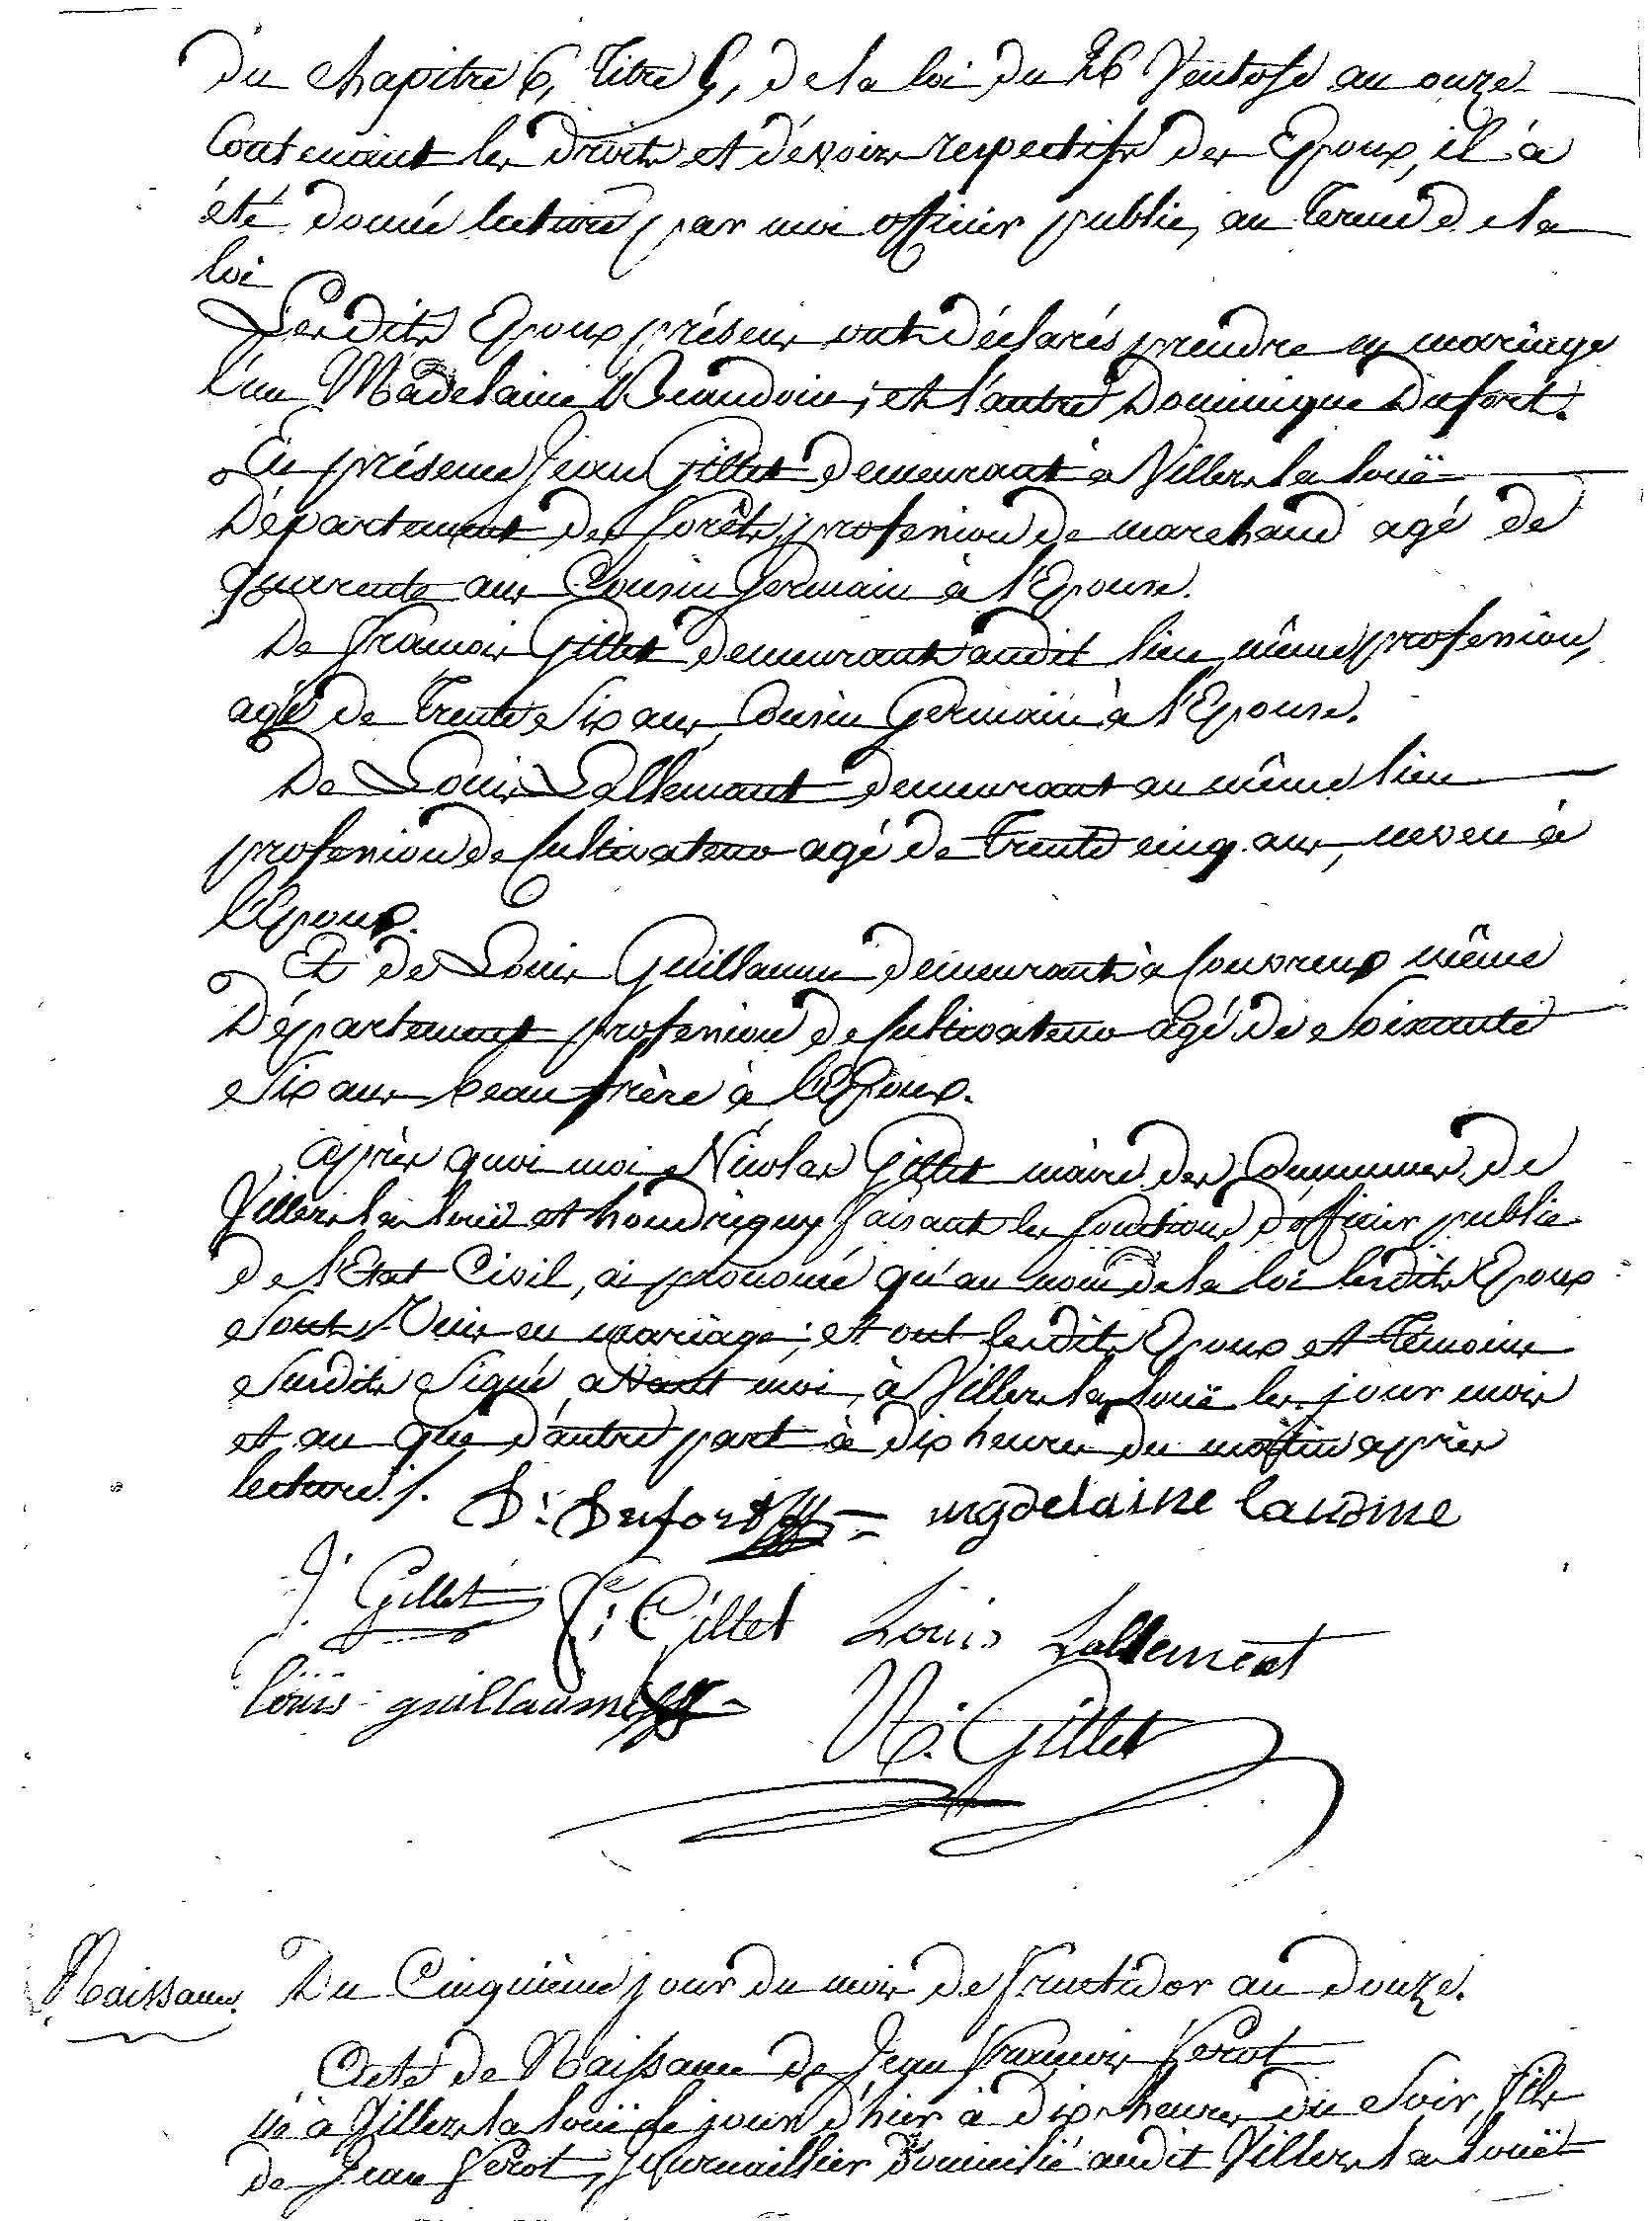 Du chapitre 6, Titre 5, de la loi du 26 Ventose an onze
Contenant les droits et dévoirs respectifs des Epoux, il à
été donné lecture par moi officier public, au terme de la
loi
Lesdits Epoux présens ont déclarés prendre en mariage
l'un Madelaine Beaudoin, et l'autre Dominique Dufort.
En présence Jean Gillet demeurant à Villers la louë
Département des forêts, profession de marchand agé de
quarente ans Cousin Germain à l'Epouse.
De François Gillet demeurant audit lieu même profession,
agé de trente six ans, Cousin Germain à l'Epouse.
De Louis Lallemant demeurant au même lieu
profession de Cultivateur agé de trente cinq ans, neveu à
l'Epoux.
Et de Louis Guillaume demeurant à Couvreux même
Département profession de Cultivateur agé de Soixante
Six ans beau frère à l'Epoux.
Après quoi moi Nicolas Gillet maire des Communes de
Villers la louë et houdrigny faisant les fonctions d'officier public
de l'Etat Civil, ai prononcé qu'au nom de la loi lesdits Epoux
Sont Unis en mariage; et ont lesdits Epoux et témoins
Susdits Signé avant moi, à Villers la louë les jour mois
et an que d'autre part à dix heures du matin après
lecture ./.
D: Dufort mgdelaine baudine
J. Gillet f: Gillet Louis Lallement
louis guillaume N. Gillet
Naissance. Du Cinquième jour du mois de fructidor an douze.
Acte de Naissance de Jean françois ferot
né à Villers la louë le jour d'hier à dix heures du Soir, fils
de Jean ferot, Journaillier Domicilié audit Villers la louët